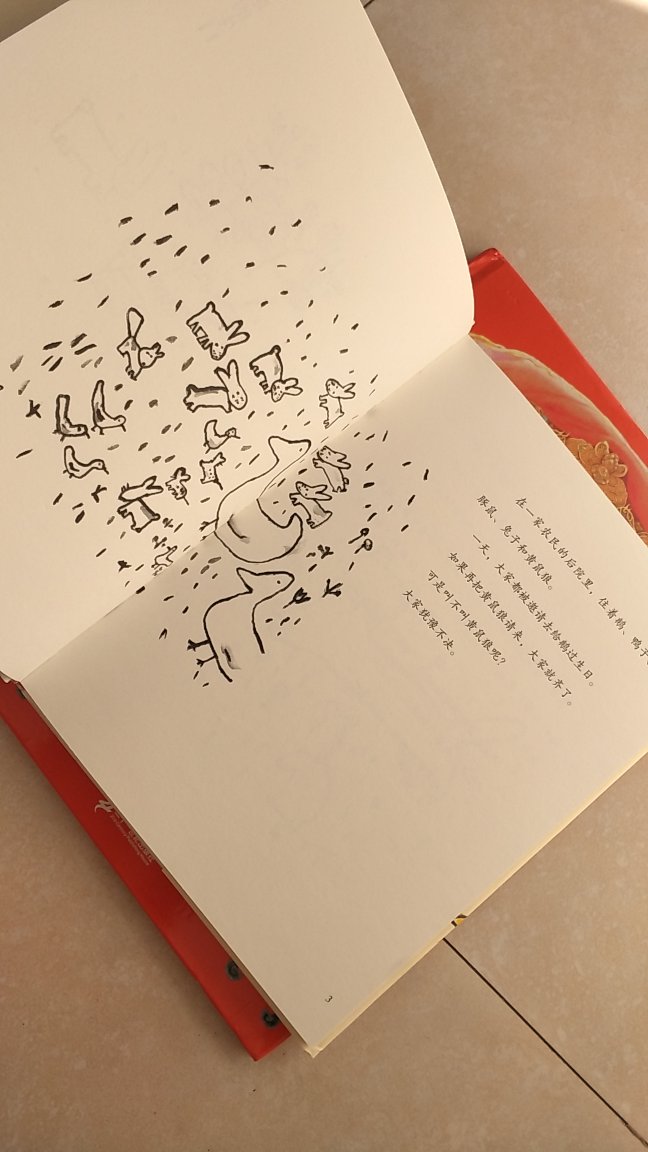 在一家农民的后院里，住着鹅、鸭子
豚鼠、兔子和黄鼠狼。
一天，大家都被邀请去给鹅过生日。
如果再把黄鼠狼请来，大家就齐了。
可是叫不叫黄鼠狼呢？
大家犹豫不决。
3